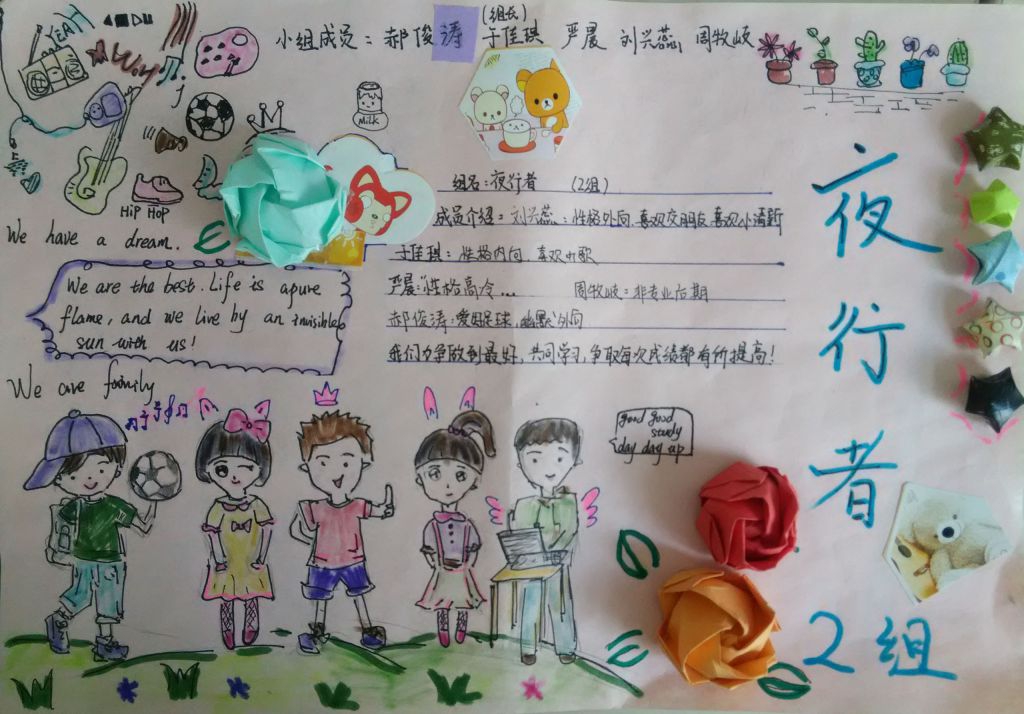 YEAH
Milk
HIP HOP
(组长)
小组成员：郝俊涛 于佳琪 严晨 刘兴蕊 周牧岐
组名：夜行者 (2组)
成员介绍：刘兴蕊：性格外向,喜欢交朋友,喜欢小清新
于佳琪：性格内向,喜欢听歌
严晨：性格高冷... 周牧岐：非专业后期
郝俊涛：爱踢足球,幽默外向
我们力争做到最好,共同学习,争取每次成绩都有所提高!
We have a dream.
We are the best. Life is apure
flame, and we live by an invisible
sun with us!
We are family
good good
study
day day up
夜行者
2组